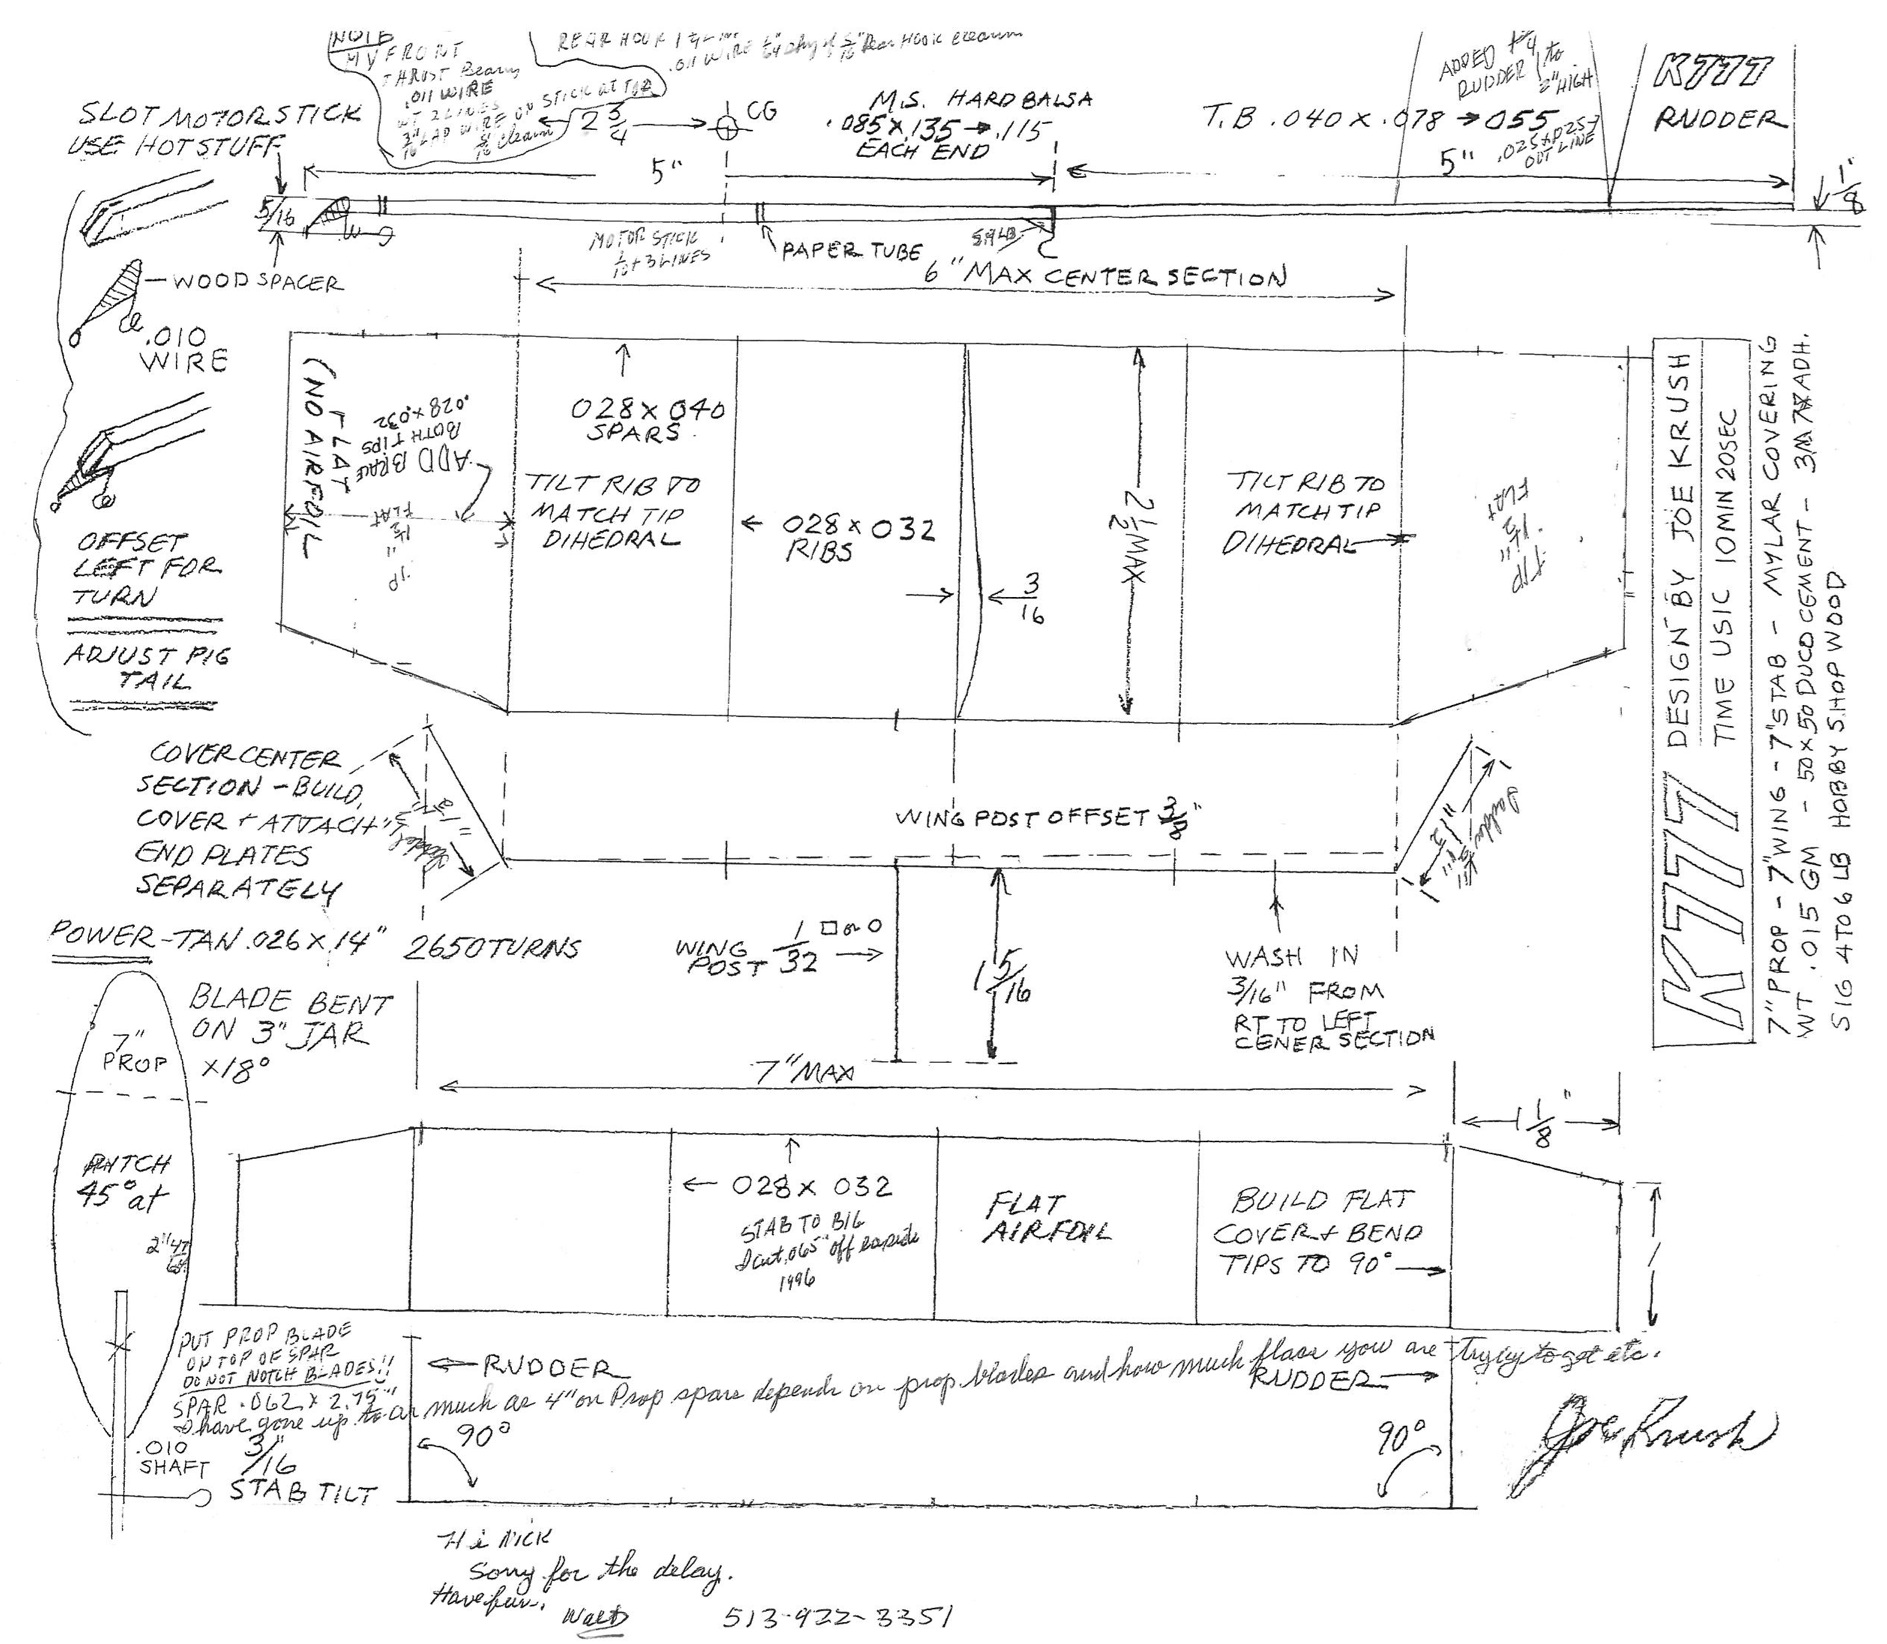 NOTE
MY FRONT
THRUST Bearing
.011 WIRE
WT 2 LINES
3/16" LAP WIRE ON STICK AT TOP
5/16 Clearn
REAR HOOK
.011 WIRE
Rear HOOK clearance
SLOT MOTORSTICK
USE HOTSTUFF
2 3/4
CG
M.S. HARD BALSA
.085 X .135 → .115
EACH END
T.B .040 X .078 → 055
ADDED
RUDDER to
2" HIGH
.025 X .025
OUTLINE
K777
RUDDER
5"
5"
1/8"
5/16
MOTOR STICK
1/10 + 3 LINES
PAPER TUBE
WOOD SPACER
.010
WIRE
6" MAX CENTER SECTION
FLAT
(NO AIRFOIL
ADD BRACE
BOTH TIPS
.028 X .032
1 1/2"
FLAT
028 X 040
SPARS
TILT RIB TO
MATCH TIP
DIHEDRAL
← 028 X 032
RIBS
3/16
2 1/2 MAX
TILT RIB TO
MATCH TIP
DIHEDRAL
TIP
1 1/2"
FLAT
OFFSET
LEFT FOR
TURN
ADJUST PIG
TAIL
K777 DESIGN BY JOE KRUSH
TIME USIC 10 MIN 20 SEC
7" PROP - 7" WING - 7" STAB - MYLAR COVERING
WT .015 GM - 50 X 50 DUCO CEMENT - 3M 77 ADH.
SIG 4 TO 6 LB HOBBY SHOP WOOD
COVER CENTER
SECTION - BUILD,
COVER + ATTACH
END PLATES
SEPARATELY
WING POST OFFSET 3/8"
1 1/2"
POWER-TAN .026 X 14" 2650 TURNS
WING
POST 1/32 □ or O
1 5/16
WASH IN
3/16" FROM
RT TO LEFT
CENER SECTION
BLADE BENT
ON 3" JAR
X 18°
7"
PROP
7" MAX
1 1/8"
PITCH
45° at
← 028 X 032
STAB TO BIG
I cut .065" off
1996
FLAT
AIRFOIL
BUILD FLAT
COVER + BEND
TIPS TO 90°
1
PUT PROP BLADE
ON TOP OF SPAR
DO NOT NOTCH BLADES!!
SPAR .062 X 2.75"
RUDDER
RUDDER
I have gone up to as much as 4" on Prop spars depends on prop blades and how much flare you are trying to get etc.
.010
SHAFT
3/16"
STAB TILT
90°
90°
Joe Krush
Hi NICK
Sorry for the delay.
Have fun.
Walt
513-922-3351